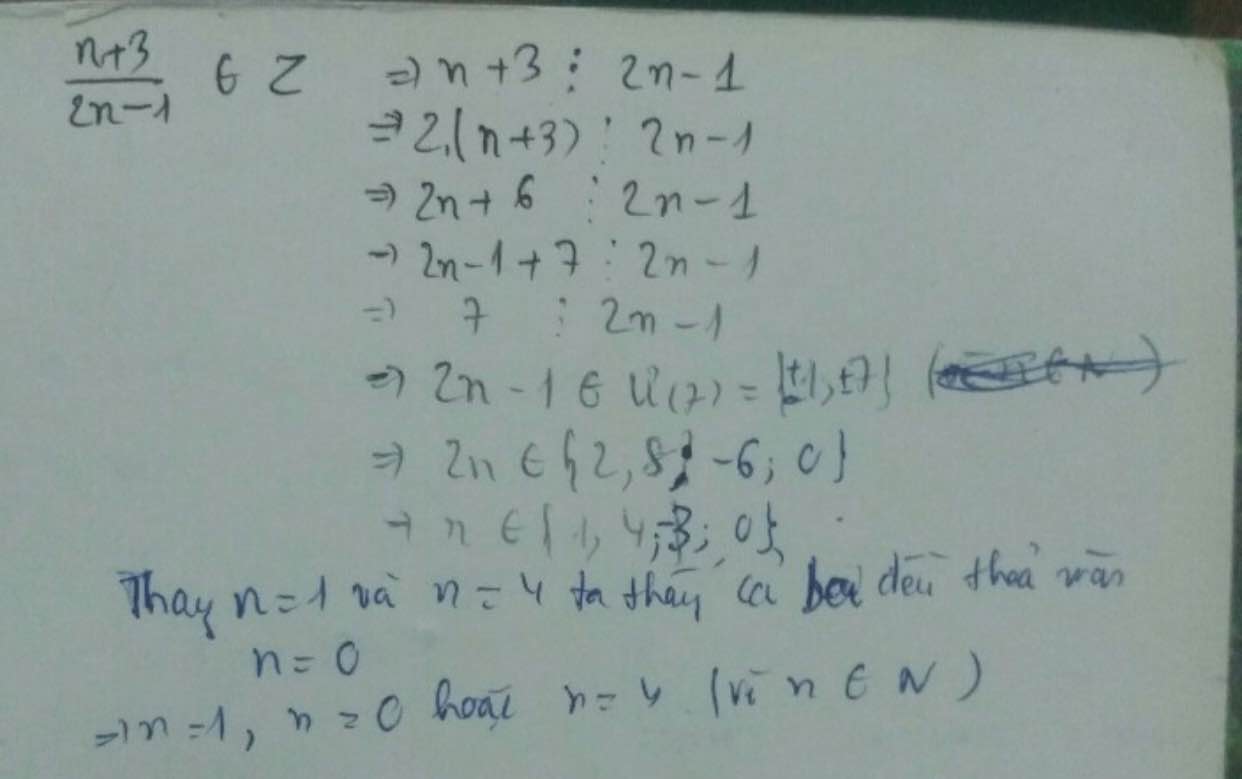 n+3/2n-1 ∈ Z ⇒ n+3 ⋮ 2n-1
⇒ 2.(n+3) ⋮ 2n-1
⇒ 2n+6 ⋮ 2n-1
⇒ 2n-1+7 ⋮ 2n-1
⇒ 7 ⋮ 2n-1
⇒ 2n-1 ∈ Ư(7) = {±1, ±7}
⇒ 2n ∈ {2, 8; -6; 0}
→ n ∈ {1, 4; -3; 0}
Thay n=1 và n=4 ta thấy cả ba đều thoả mãn
n=0
⇒ n=1, n=0 hoặc n=4 (vì n ∈ N)